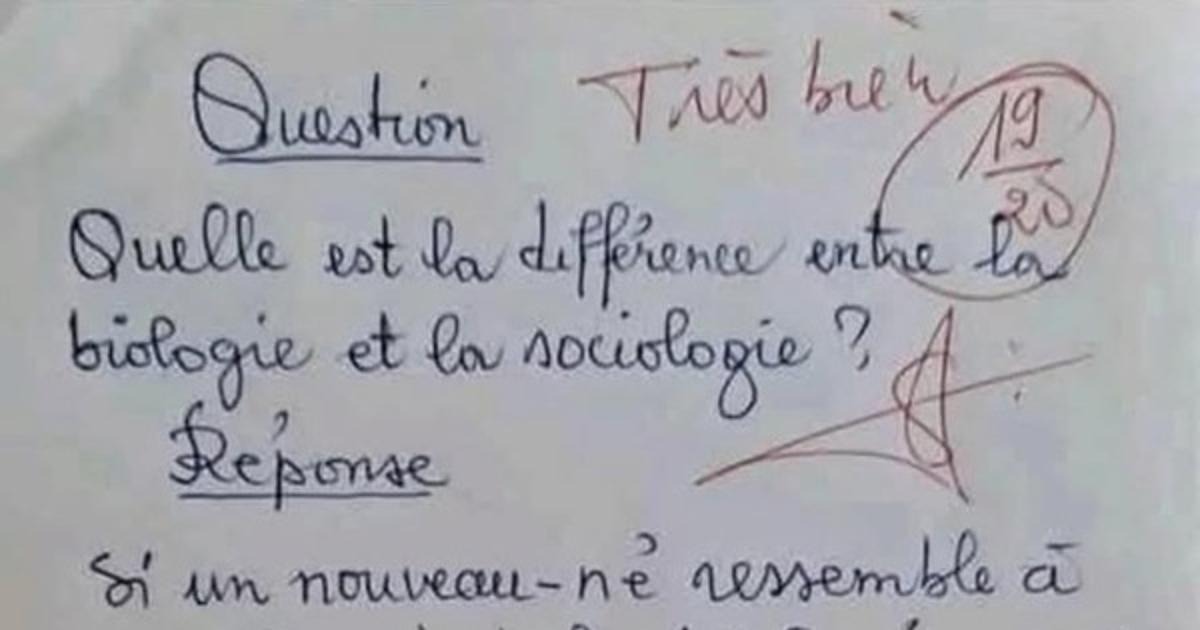 Question
Très bien
19/20
Quelle est la différence entre la
biologie et la sociologie ?
Réponse
Si un nouveau-né ressemble à